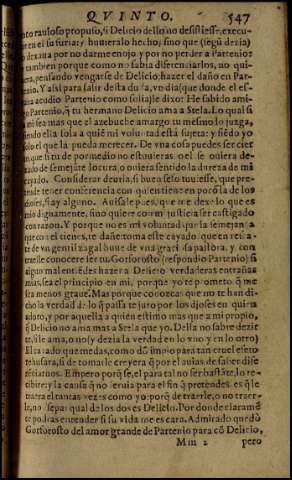 QVINTO. 547
to rauioso proposito, si Delicio dello no desistiesse, execu-
en el su furia: y huuieralo hecho, sino que (segũ dezia)
o dexaua por no darme enojo, y por no perder a Partenio:
tambien porque como no sabia diferenciarlos, no qui-
era, pensando vengarse de Delicio, hazer el daño en Par-
nio. Y assi para salir desta duda, vn dia que donde el es-
aua acudio Partenio como solia, le dixo: He sabido ami-
go Partenio, q̃ tu hermano Delicio ama a Stela. Lo qual si
assi es, sea mas que el azebuche amargo tu mesmo lo juzga,
siendo ella sola a quiẽ mi voluntad està sujeta: y siẽdo yo
solo el que la pueda merecer. De vna cosa puedes ser cier-
que si tu de por medio no estuuieras o el se ouiera de-
xado de semejãte locura, o ouiera sentido la dureza de mi
cayado. Considerar deuria, si buen seso touiesse, que pre-
tende tener conferencia con quien tiene en poco la de los
dioses, si ay alguno. Auisale pues, que me dexe lo que es
mio dignamente, sino quiere con mi justicia ser castigado
con razon. Y porque no es mi voluntad
que con el tienes, te dañe, toma este cayado, que en recat-
de vn gentil zagal huue de vna graciosa pastora, y con
el te conocere ser tu. Gorforosto (respondio Partenio) si
algun mal entẽdes hazer a Delicio verdaderas entrañas
mias, sea el principio en mi, porque yo te prometo q̃ me
sera menos graue. Mas porque conozcas que no te han di-
cho la verdad de lo q̃ passa, te juro por los dioses en quien
adoro, y por aquella a quien estimo mas que a mi propio,
q̃ Delicio no ama mas a Stela que yo. Della no sabre dezir
te, si le ama, o no (y dezia la verdad en lo vno y en lo otro)
El cayado que me das, como dõ impio para tan cruel efeto
rehusara, si de tomarle creyera q̃ por el auias de saber dife-
reciarnos. Empero porq̃ se, el para tal no ser bastãte, lo re-
cibire: y la causa q̃ no seruia para el fin q̃ pretendes, es q̃ le
traera el tantas vezes como yo: porq̃ de traerle, o no traer-
le, no sepas qual de los dos es Delicio. Por donde claramẽ-
te podras entender si su vida me es cara. Admirado quedò
Gorforosto del amor grande de Partenio para cõ Delicio,
Mm 2 pero